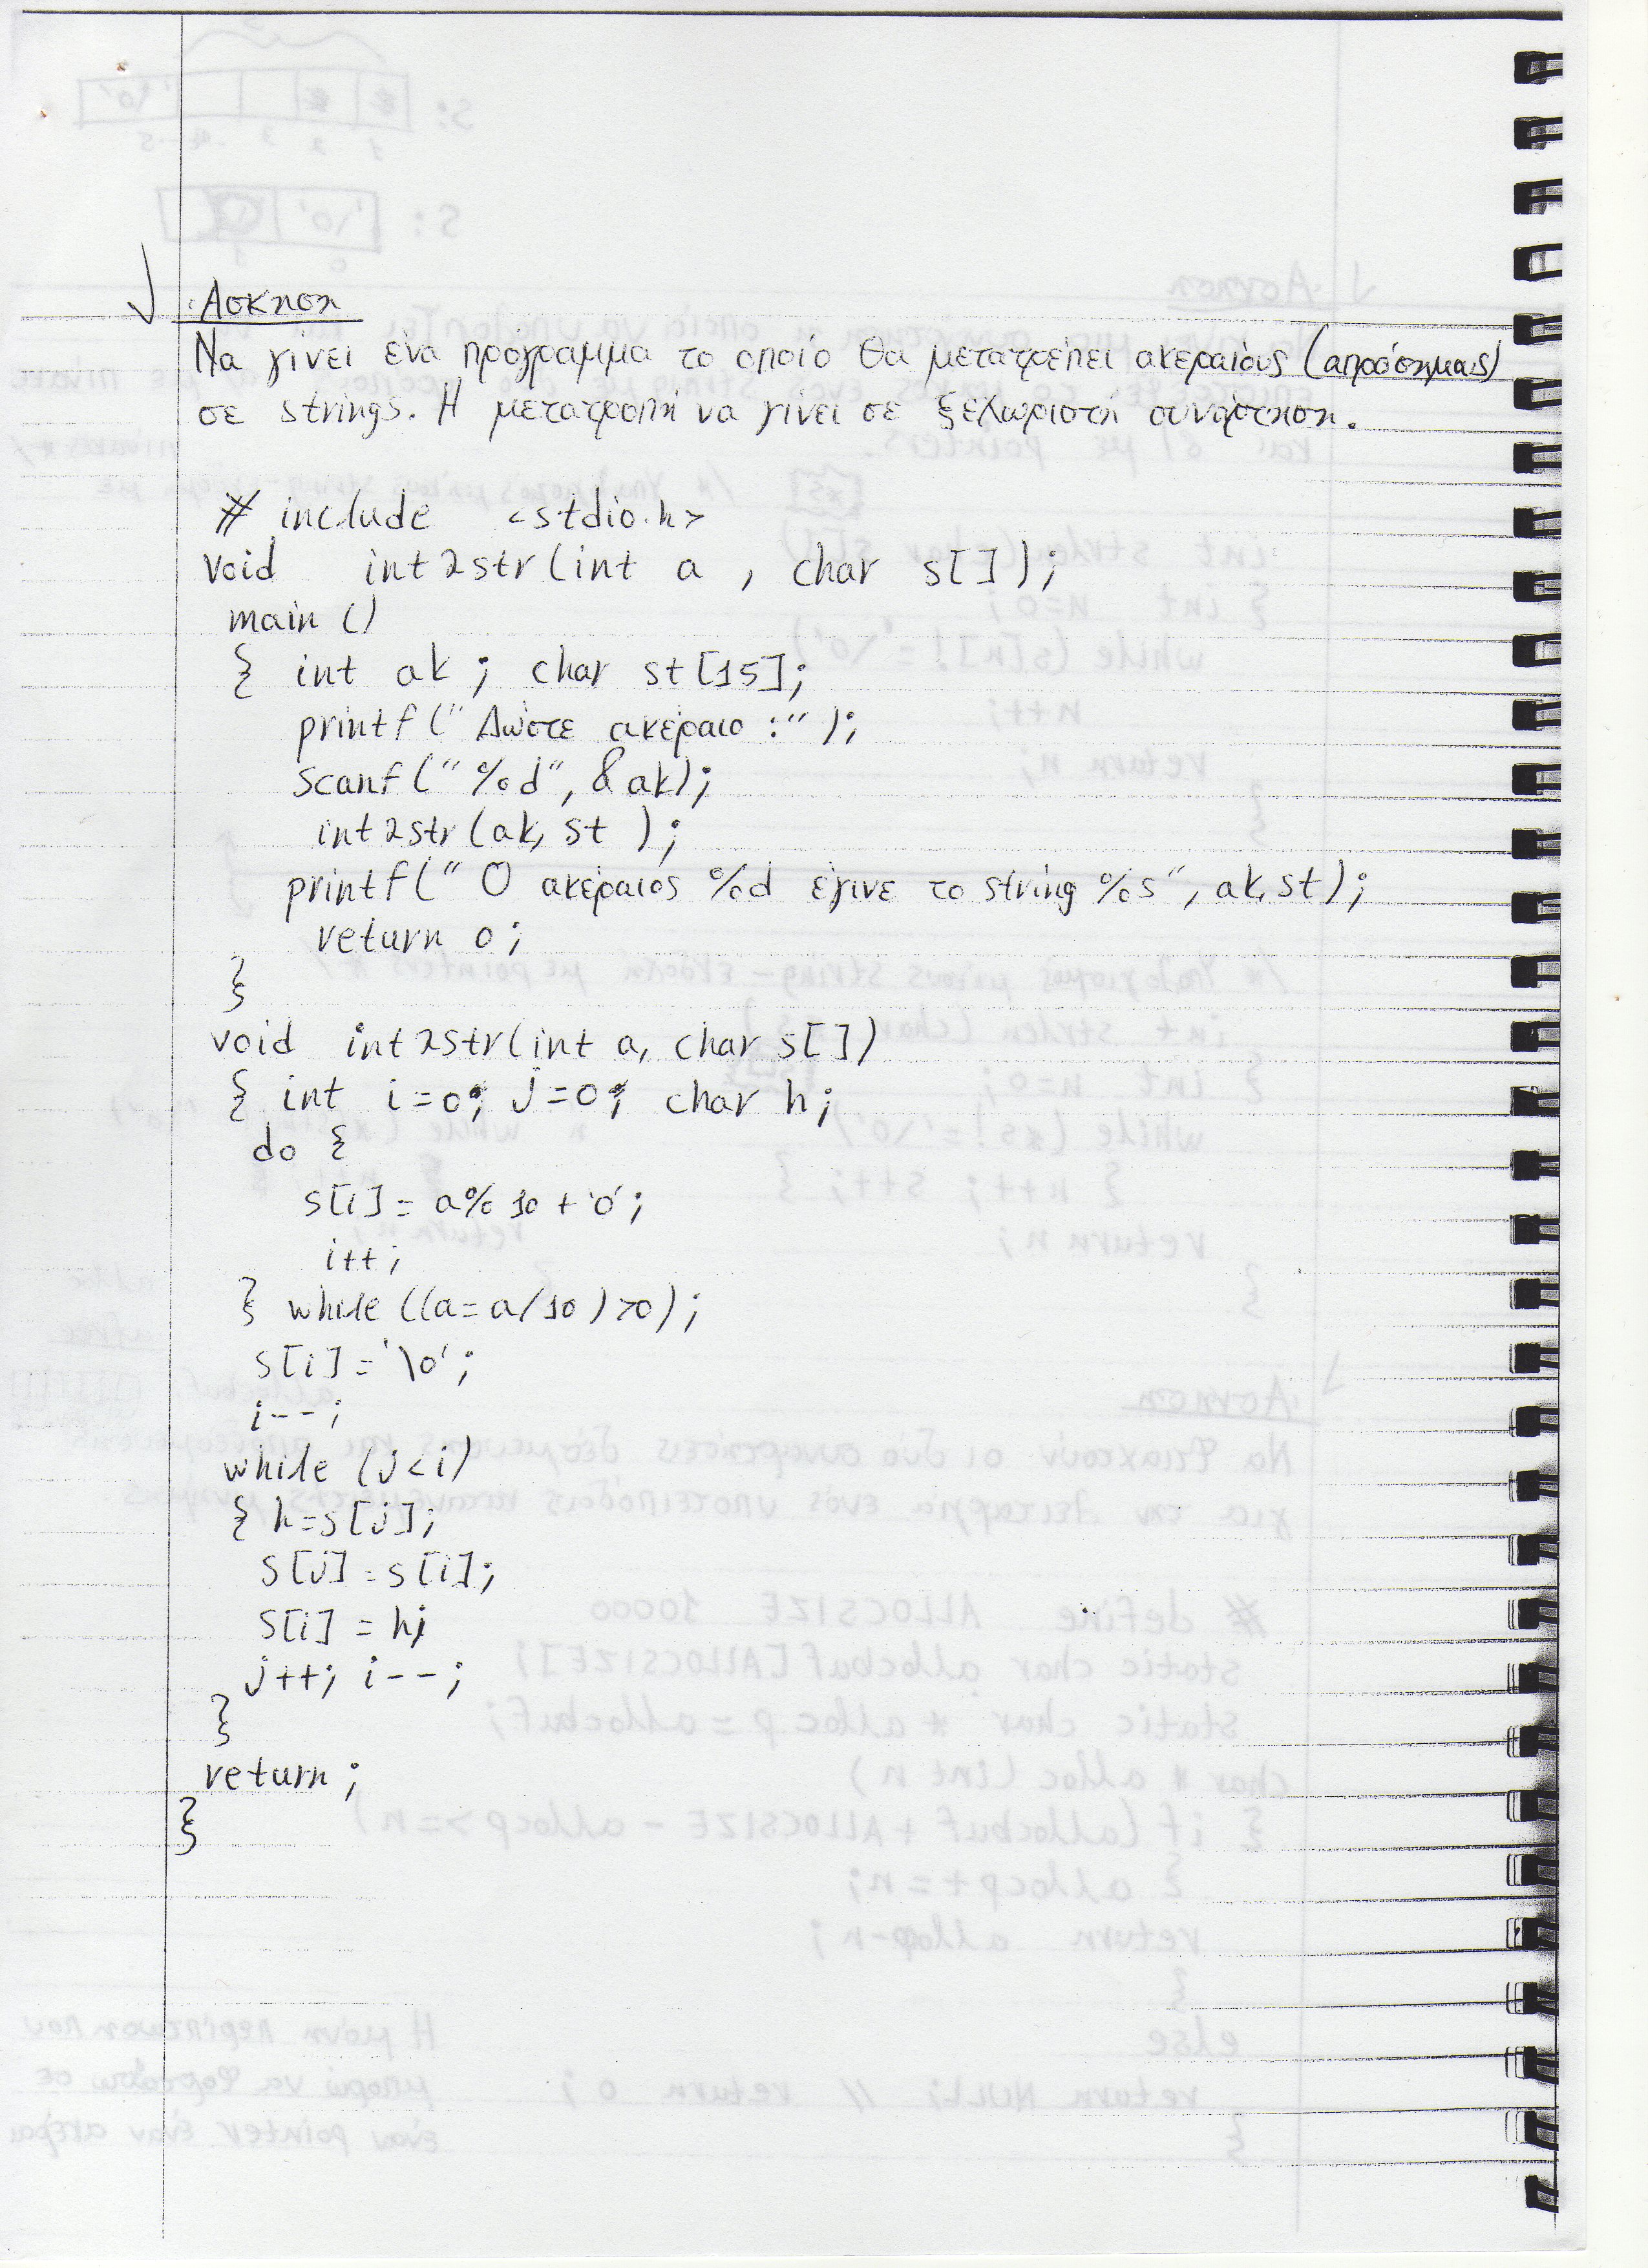 Άσκηση
Να γίνει ένα πρόγραμμα το οποίο θα μετατρέπει ακεραίους (απρόσημους)
σε strings. Η μετατροπή να γίνει σε ξεχωριστή συνάρτηση.
# include <stdio.h>
void int2str(int a , char s[]);
main ()
{ int ak ; char st[15];
printf(" Δώστε ακέραιο :" );
scanf(" %d", &ak);
int2str(ak, st );
printf(" Ο ακέραιος %d έγινε το string %s", ak, st);
return 0;
}
void int2str(int a, char s[])
{ int i=0; j=0; char h;
do {
s[i] = a% 10 + '0';
i++;
} while ((a=a/10)>0);
s[i] = '\0';
i--;
while (j<i)
{ h=s[j];
s[j] = s[i];
s[i] = h;
j++; i--;
}
return;
}